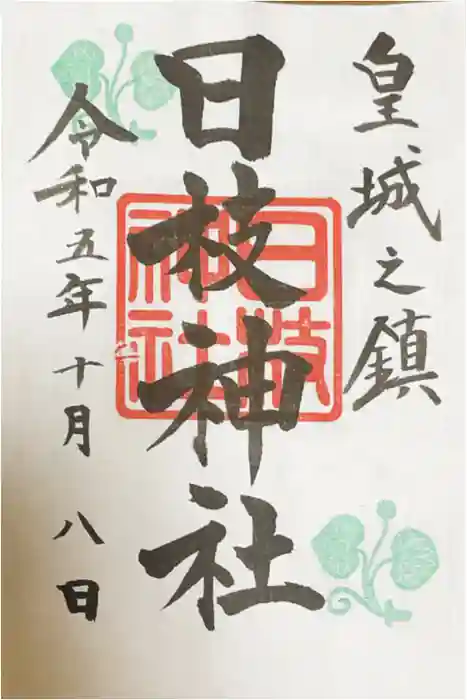 皇城之鎮
日枝神社
令和五年十月八日
日枝
神社